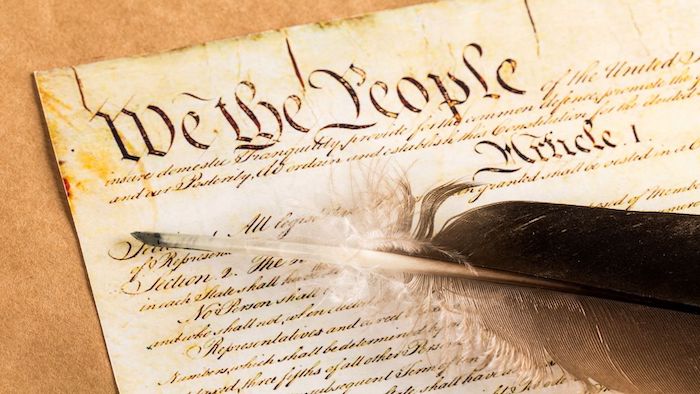 We the People
of the United S
insure domestic Tranquility, provide for the common defence, promote the
and our Posterity, do ordain and establish this Constitution for the United S
Article. I.
granted shall be vested in a C
Section. 1. All legis
of Represen
Section 2. The
in each State shall ha
No Person shall
and who shall not, when elected
Representatives and
Numbers, which shall be determined by
three fifths of all other Person
subsequent Term of ten
State shall have a